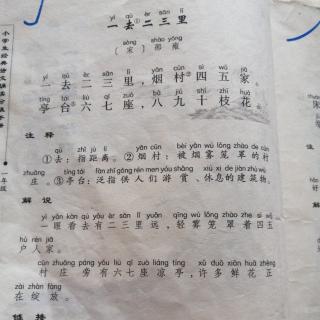 yí qù èr sān lǐ
一去二三里
sòng shào yōng
〔宋〕 邵雍
yí qù èr sān lǐ yān cūn sì wǔ jiā
一去①二三里，烟村②四五家。
tíng tái liù qī zuò bā jiǔ shí zhī huā
亭台③六七座，八九十枝花。
注释
qù zhǐ jù lí yān cūn bèi yān wù lǒng zhào de cūn
①去：指距离。②烟村：被烟雾笼罩的村
zhuāng tíng tái fàn zhǐ gōng rén men yóu shǎng xiū xi de jiàn zhù wù
庄。③亭台：泛指供人们游赏、休息的建筑物。
解说
yì yǎn kàn qù yǒu èr sān lǐ yuǎn qīng wù lǒng zhào zhe sì wǔ
一眼看去有二三里远，轻雾笼罩着四五
hù rén jiā
户人家。
cūn zhuāng páng yǒu liù qī zuò liáng tíng xǔ duō xiān huā zhèng
村庄旁有六七座凉亭，许多鲜花正
zài zhàn fàng
在绽放。
链接
一年级